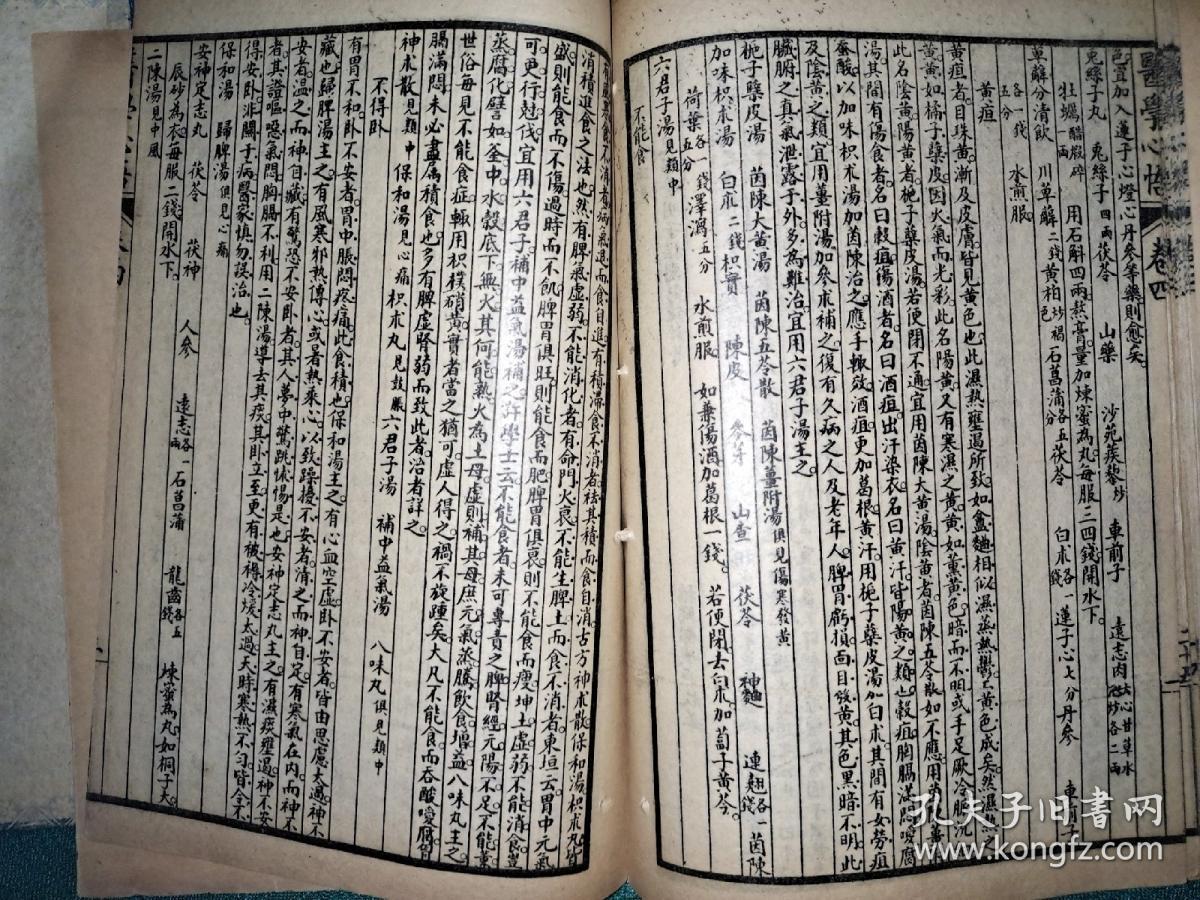 醫學心悟 卷四
色宜加入蓮子心燈心丹參等藥則愈矣
兎絲子丸 兎絲子四兩茯苓 山藥 沙苑蒺藜炒 車前子 遠志肉去心甘草水泡炒各二兩
牡蠣醋煆碎一兩 用石斛四兩熬膏量加煉蜜為丸每服二四錢開水下
萆薢分清飲 川萆薢二錢黃柏炒褐色石菖蒲各五分茯苓 白朮各一錢蓮子心七分丹參 車前子
各一錢 水煎服
黃疸
黃疸者目珠黃漸及皮膚皆見黃色也此濕熱壅遏所致如盦麯相似濕蒸熱鬱而黃色成矣然濕熱之
黃黃如橘子蘗皮因火氣而光彩此名陽黃又有寒濕之黃黃如薰黃色暗而不明或手足厥冷脈沉
此名陰黃陽黃者梔子蘗皮湯若便閉不通宜用茵陳大黃湯陰黃者茵陳五苓散如不應用茵陳薑附
湯其間有傷食者名曰穀疸傷酒者名曰酒疸出汗染衣名曰黃汗皆陽黃之類也穀疸胸膈滿悶噯腐
吞酸以加味枳朮湯加茵陳治之應手輒效酒疸更加葛根黃汗用梔子蘗皮湯加白朮其間有女勞疸
及陰黃之類宜用薑附湯加參朮補之復有久病之人及老年人脾胃虧損面目發黃其色黑暗不明此
臟腑之真氣泄露于外多為難治宜用六君子湯主之
梔子蘗皮湯 茵陳大黃湯 茵陳五苓散 茵陳薑附湯俱見傷寒發黃
加味枳朮湯 白朮二錢枳實 陳皮 麥芽 山查 茯苓 神麯 連翹各一錢茵陳
荷葉各一錢五分澤瀉五分 水煎服 如兼傷酒加葛根一錢 若便閉去白朮加蔔子黃芩
六君子湯見類中
不能食
消積進食之法也然有脾氣虛弱不能消化者有命門火衰不能生脾土而食不消者東垣云胃中元氣
盛則能食而不傷過時而不飢脾胃俱旺則能食而肥脾胃俱衰則不能食而瘦坤土虛弱不能消食豈
可更行尅伐宜用六君子補中益氣湯補之許學士云不能食者未可專責之脾腎經元陽不足不能薰
蒸腐化譬如釜中水穀底下無火其何能熟火為土母虛則補其母庶元氣蒸騰飲食增益八味丸主之
世俗每見不能食症輒用枳樸硝黃實者當之猶可虛人得之禍不旋踵矣大凡不能食而吞酸噯腐胃
膈滿悶未必盡屬積食也多有脾虛腎弱而致此者治者詳之
神朮散見類中保和湯見心痛枳朮丸見鼓脹六君子湯 補中益氣湯 八味丸俱見類中
不得臥
有胃不和臥不安者胃中脹悶疼痛此食積也保和湯主之有心血空虛臥不安者皆由思慮太過神不
藏也歸脾湯主之有風寒邪熱傳心或暑熱乘心以致躁擾不安者清之而神自定有寒氣在內而神不
安者溫之而神自藏有驚恐不安臥者其人夢中驚跳怵惕是也安神定志丸主之有濕痰壅遏神不安
者其證嘔惡氣悶胸膈不利用二陳湯導去其痰其臥立至更有被褥冷煖太過天時寒熱不勻皆令不
得安臥非關于病醫家慎勿誤治也
保和湯 歸脾湯俱見心痛
安神定志丸 茯苓 茯神 人參 遠志各一兩石菖蒲 龍齒各五錢 煉蜜為丸如桐子大
辰砂為衣每服二錢開水下
二陳湯見中風
孔夫子旧书网
www.kongfz.com